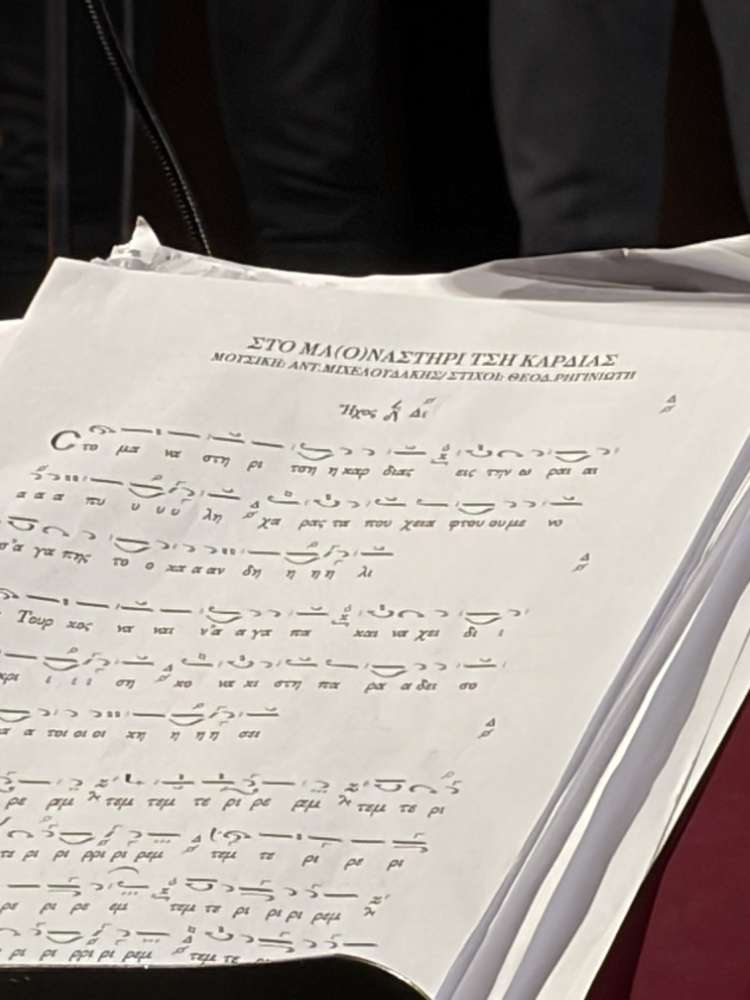 ΣΤΟ ΜΑ(Ο)ΝΑΣΤΗΡΙ ΤΣΗ ΚΑΡΔΙΑΣ
ΜΟΥΣΙΚΗ: ΑΝΤ.ΜΙΧΕΛΟΥΔΑΚΗΣ/ ΣΤΙΧΟΙ: ΘΕΟΔ.ΡΗΓΙΝΙΩΤΗ
Ἦχος Δι
Στο μα να στη ρι τση η καρ διας εις την ω ραι αι
α α α πυ υ υ υ λη χα ρας τα που χεια φτου ου με νο
σ'α γα πης το ο κα α αν δη η η η λι
Τουρ κος να ναι ν'α α γα πα και να χει δι ι
κρι ι ι ι ση κο να κι στη πα ρα α δει σο
α α τοι οι οι χη η η η σει
ρε ρεμ τεμ τεμ τε ρι ρε ρεμ τεμ τε ρι
τε ρι ρι ρρι ρι ρεμ τεμ τε ρι ρε ρι
ρε ρι ρε εμ τεμ τε ρι ρι ρι ρεμ
ρι ρι ρρι ρι ρεμ τεμ τε